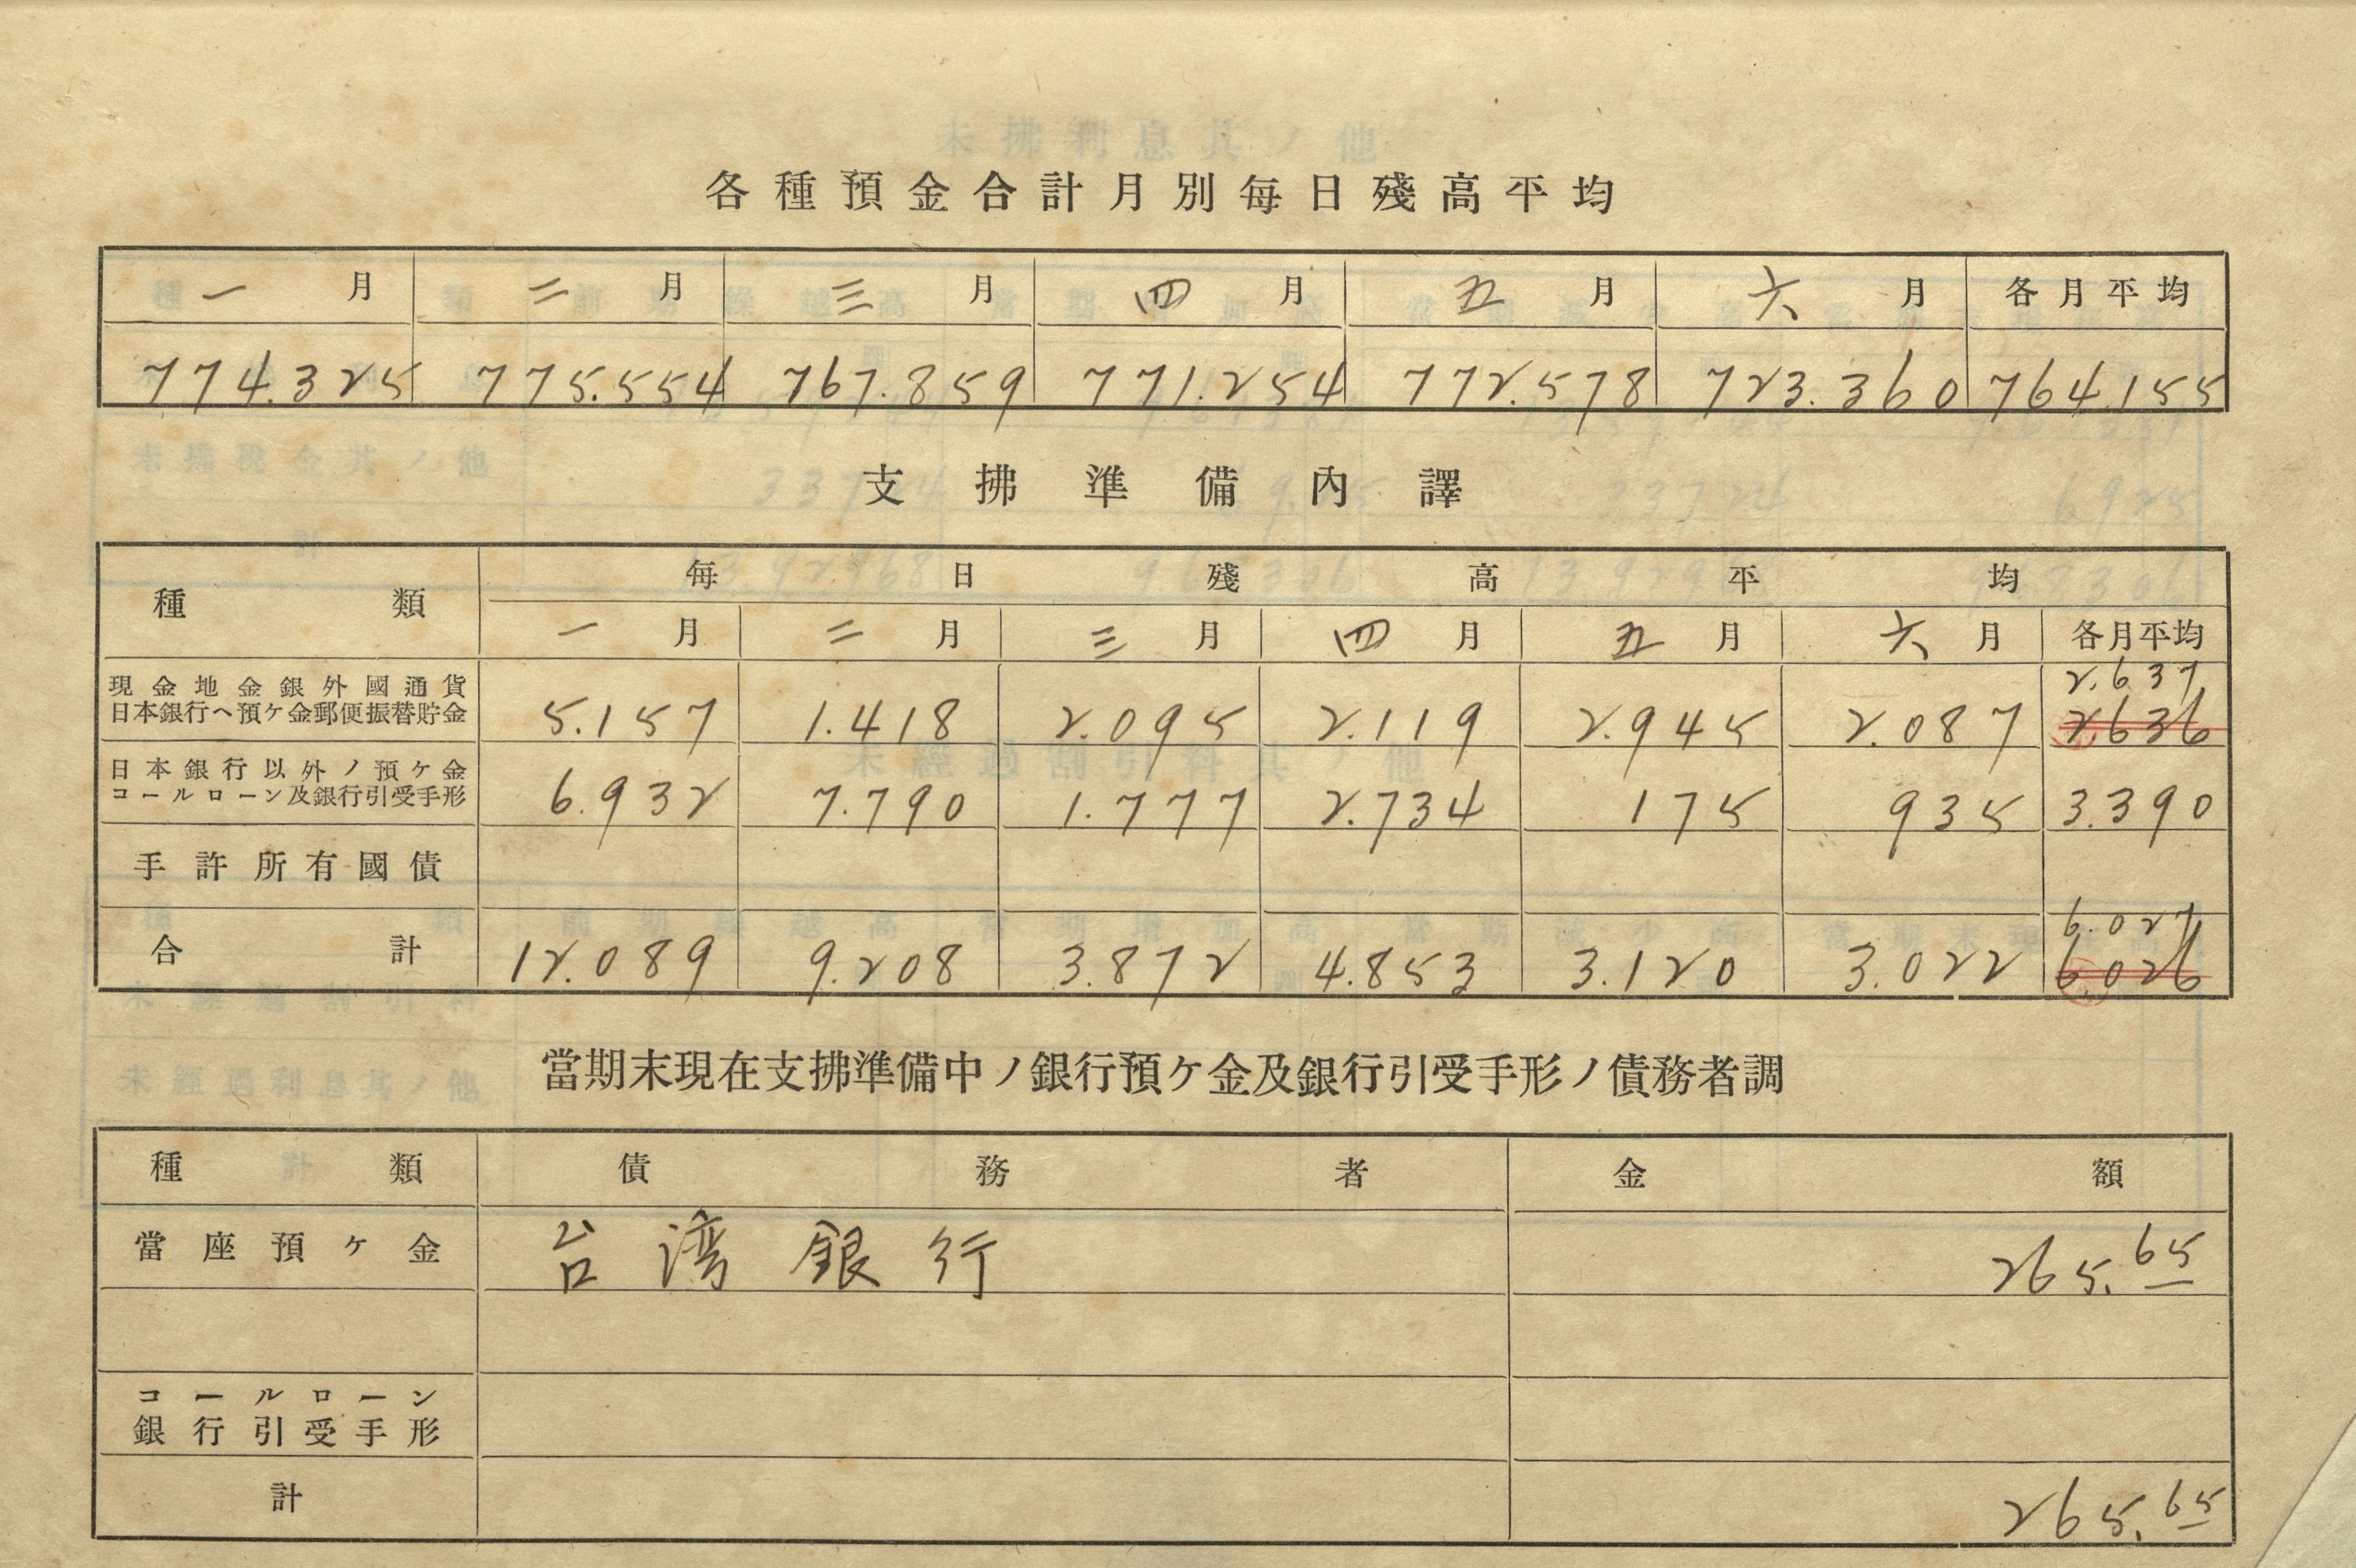 各種預金合計月別每日殘高平均
一月 二月 三月 四月 五月 六月 各月平均
774.325 775.554 767.859 771.254 772.578 723.360 764.155
支拂準備內譯
種類 每日殘高平均
一月 二月 三月 四月 五月 六月 各月平均
2.637
現金地金銀外國通貨
日本銀行ヘ預ケ金郵便振替貯金 5.157 1.418 2.095 2.119 2.945 2.087 2636
日本銀行以外ノ預ケ金
コールローン及銀行引受手形 6.932 7.790 1.777 2.734 175 935 3.390
手許所有國債
6.027
合計 12.089 9.208 3.872 4.853 3.120 3.022 6.026
當期末現在支拂準備中ノ銀行預ケ金及銀行引受手形ノ債務者調
種類 債務者 金額
當座預ケ金 台湾銀行 265.65
コールローン
銀行引受手形
計 265.65